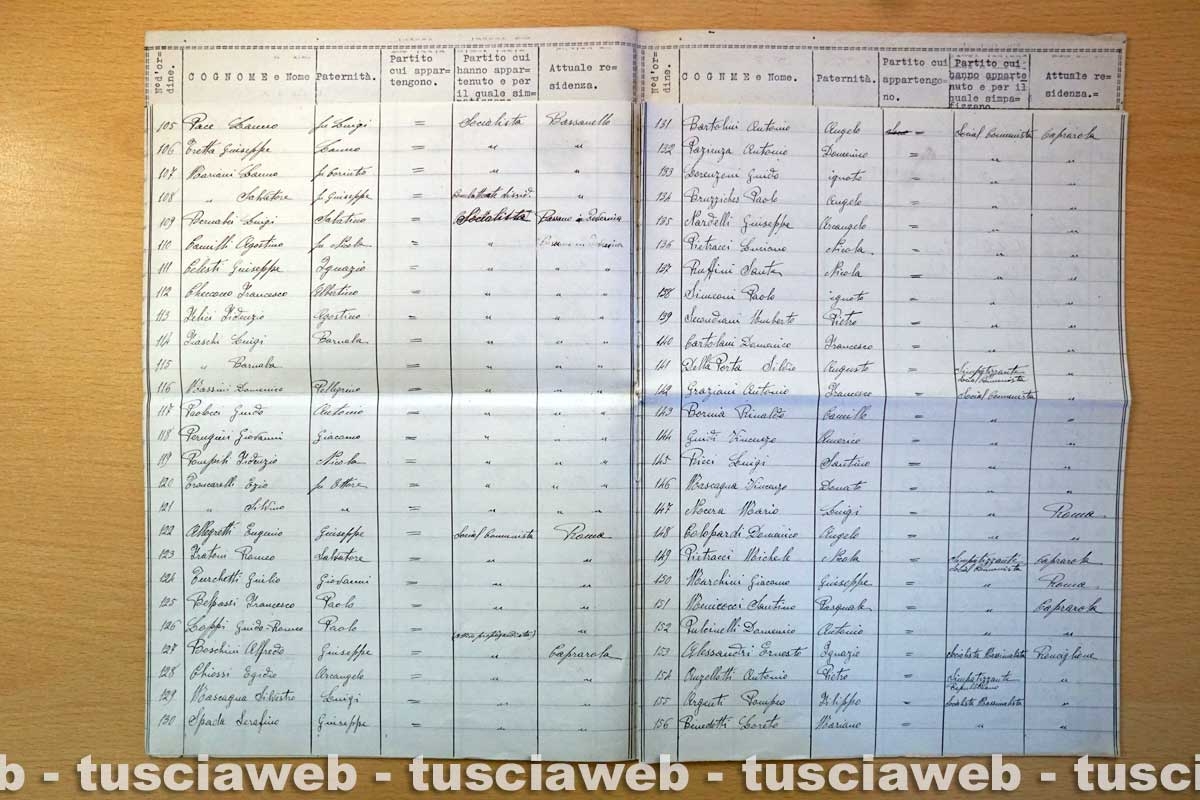 N°d'or=
dine.
COGNOME e Nome
Paternità.
Partito
cui appar=
tengono.
Partito cui
hanno appar=
tenuto e per
il quale sim=
Attuale re=
sidenza.
105 Pace fu Luigi = Socialista Bassanello
106 Tretta Giuseppe = " "
107 Mariani fu = " "
108 " Salvatore fu Giuseppe = "
109 Bernabei Luigi Sabatino = Socialista Bassano in
110 Camilli Agostino fu Nicola = " Bassano in
111 Celesti Giuseppe Ignazio = " " "
112 Checcacci Francesco Albertino = " " "
113 Felici Fidenzio Agostino = " " "
114 Fiaschi Luigi Barnaba = " " "
115 " Barnaba = " " "
116 Massini Domenico Pellegrino = " " "
117 Paolocci Guido Antonio = " " "
118 Perugini Giovanni Giacomo = " " "
119 Pompili Fidenzio Nicola = " " "
120 Troncarelli Ezio fu Ettore = " " "
121 " Silvino " = " " "
122 Allegretti Eugenio Giuseppe = Social Comunista Roma
123 Fratoni Romeo Salvatore = " "
124 Turchetti Giulio Giovanni = " "
125 Belpassi Francesco Paolo = " "
126 Loppi Guido-Romeo Paolo = "
127 Boschini Alfredo Giuseppe = " Caprarola
128 Chiossi Egidio Arcangelo = " "
129 Mascagna Silvestro Luigi = " "
130 Spada Serafino Giuseppe = " "
N°d'or=
dine.
COGNME e Nome.
Paternità.
Partito cui
appartengo=
no.
Partito cui
hanno apparte
nuto e per il
quale simpa=
tizzano.
Attuale re=
sidenza.=
131 Bartolini Antonio Angelo = Social Comunista Caprarola
132 Pazienza Antonio Domenico = " "
133 Lorenzoni Guido ignoto = " "
134 Bruzziches Paolo Angelo = " "
135 Nardelli Giuseppe Arcangelo = " "
136 Pietracci Luciano Nicola = " "
137 Ruffini Santa Nicola = " "
138 Simeoni Paolo ignoto = " "
139 Secondiani Umberto Pietro = " "
140 Bartolani Domenico Francesco = " "
141 Della Porta Silvio Augusto = Simpatizzante Social Comunista "
142 Graziani Antonio Francesco = Social Comunista "
143 Bernia Rinaldo Camillo = " "
144 Guidi Vincenzo Americo = " "
145 Ricci Luigi Santino = " "
146 Mascagna Vincenzo Donato = " "
147 Nocera Mario Luigi = " Roma
148 Colopardi Domenico Angelo = " "
149 Pietracci Michele Nicola = Simpatizzanti Social Comunista Caprarola
150 Marchini Giacomo Giuseppe = " Roma
151 Menicocci Santino Pasquale = " Caprarola
152 Pulcinelli Domenico Antonio = " "
153 Alessandri Ernesto Ignazio = Socialista Massimalista Ronciglione
154 Angeletti Antonio Pietro = Simpatizzante Republicano "
155 Argenti Pompeo Filippo = Socialista Massimalista "
156 Benedetti Loreto Mariano = " "
b - tusciaweb - tusciaweb - tusciaweb - tusc